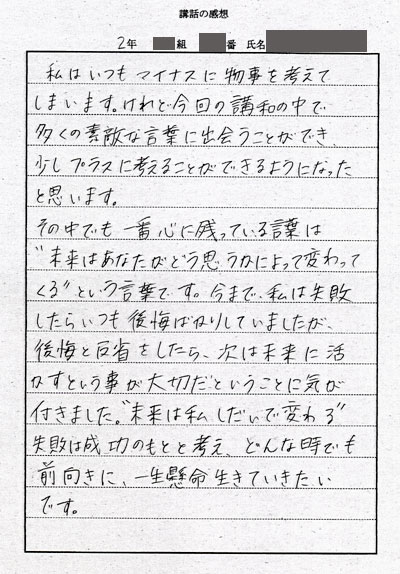 講話の感想
2年 組 番 氏名
私はいつもマイナスに物事を考えて
しまいます。けれど今回の講和の中で
多くの素敵な言葉に出会うことができ、
少しプラスに考えることができるようになった
と思います。
その中でも一番心に残っている言葉は
"未来はあなたがどう思うかによって変わって
くる"という言葉です。今まで、私は失敗
したらいつも後悔ばかりしていましたが、
後悔と反省をしたら、次は未来に活
かすという事が大切だということに気が
付きました。"未来は私しだいで変わる"
失敗は成功のもとと考え、どんな時でも
前向きに、一生懸命生きていきたい
です。